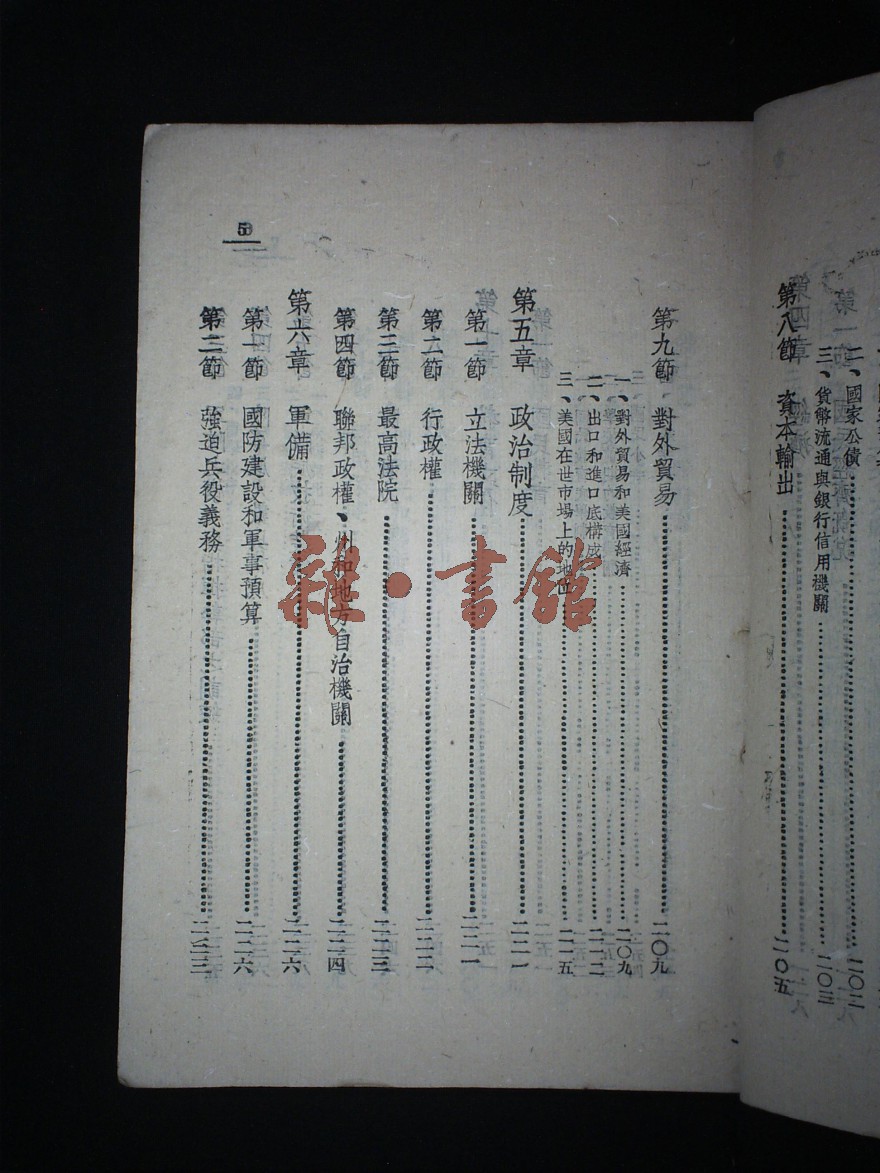 二、國家公債……二〇二
三、貨幣流通與銀行信用機關……二〇三
第八節 資本輸出……二〇五
第九節 對外貿易……二〇九
一、對外貿易和美國經濟……二〇九
二、出口和進口底構成……二一二
三、美國在世市場上的地位……二一五
第五章 政治制度……二二一
第一節 立法機關……二二一
第二節 行政權……二二二
第三節 最高法院……二二三
第四節 聯邦政權、州和地方自治機關……二二四
第六章 軍備……二二六
第一節 國防建設和軍事預算……二二六
第二節 強迫兵役義務
5
雜·書館